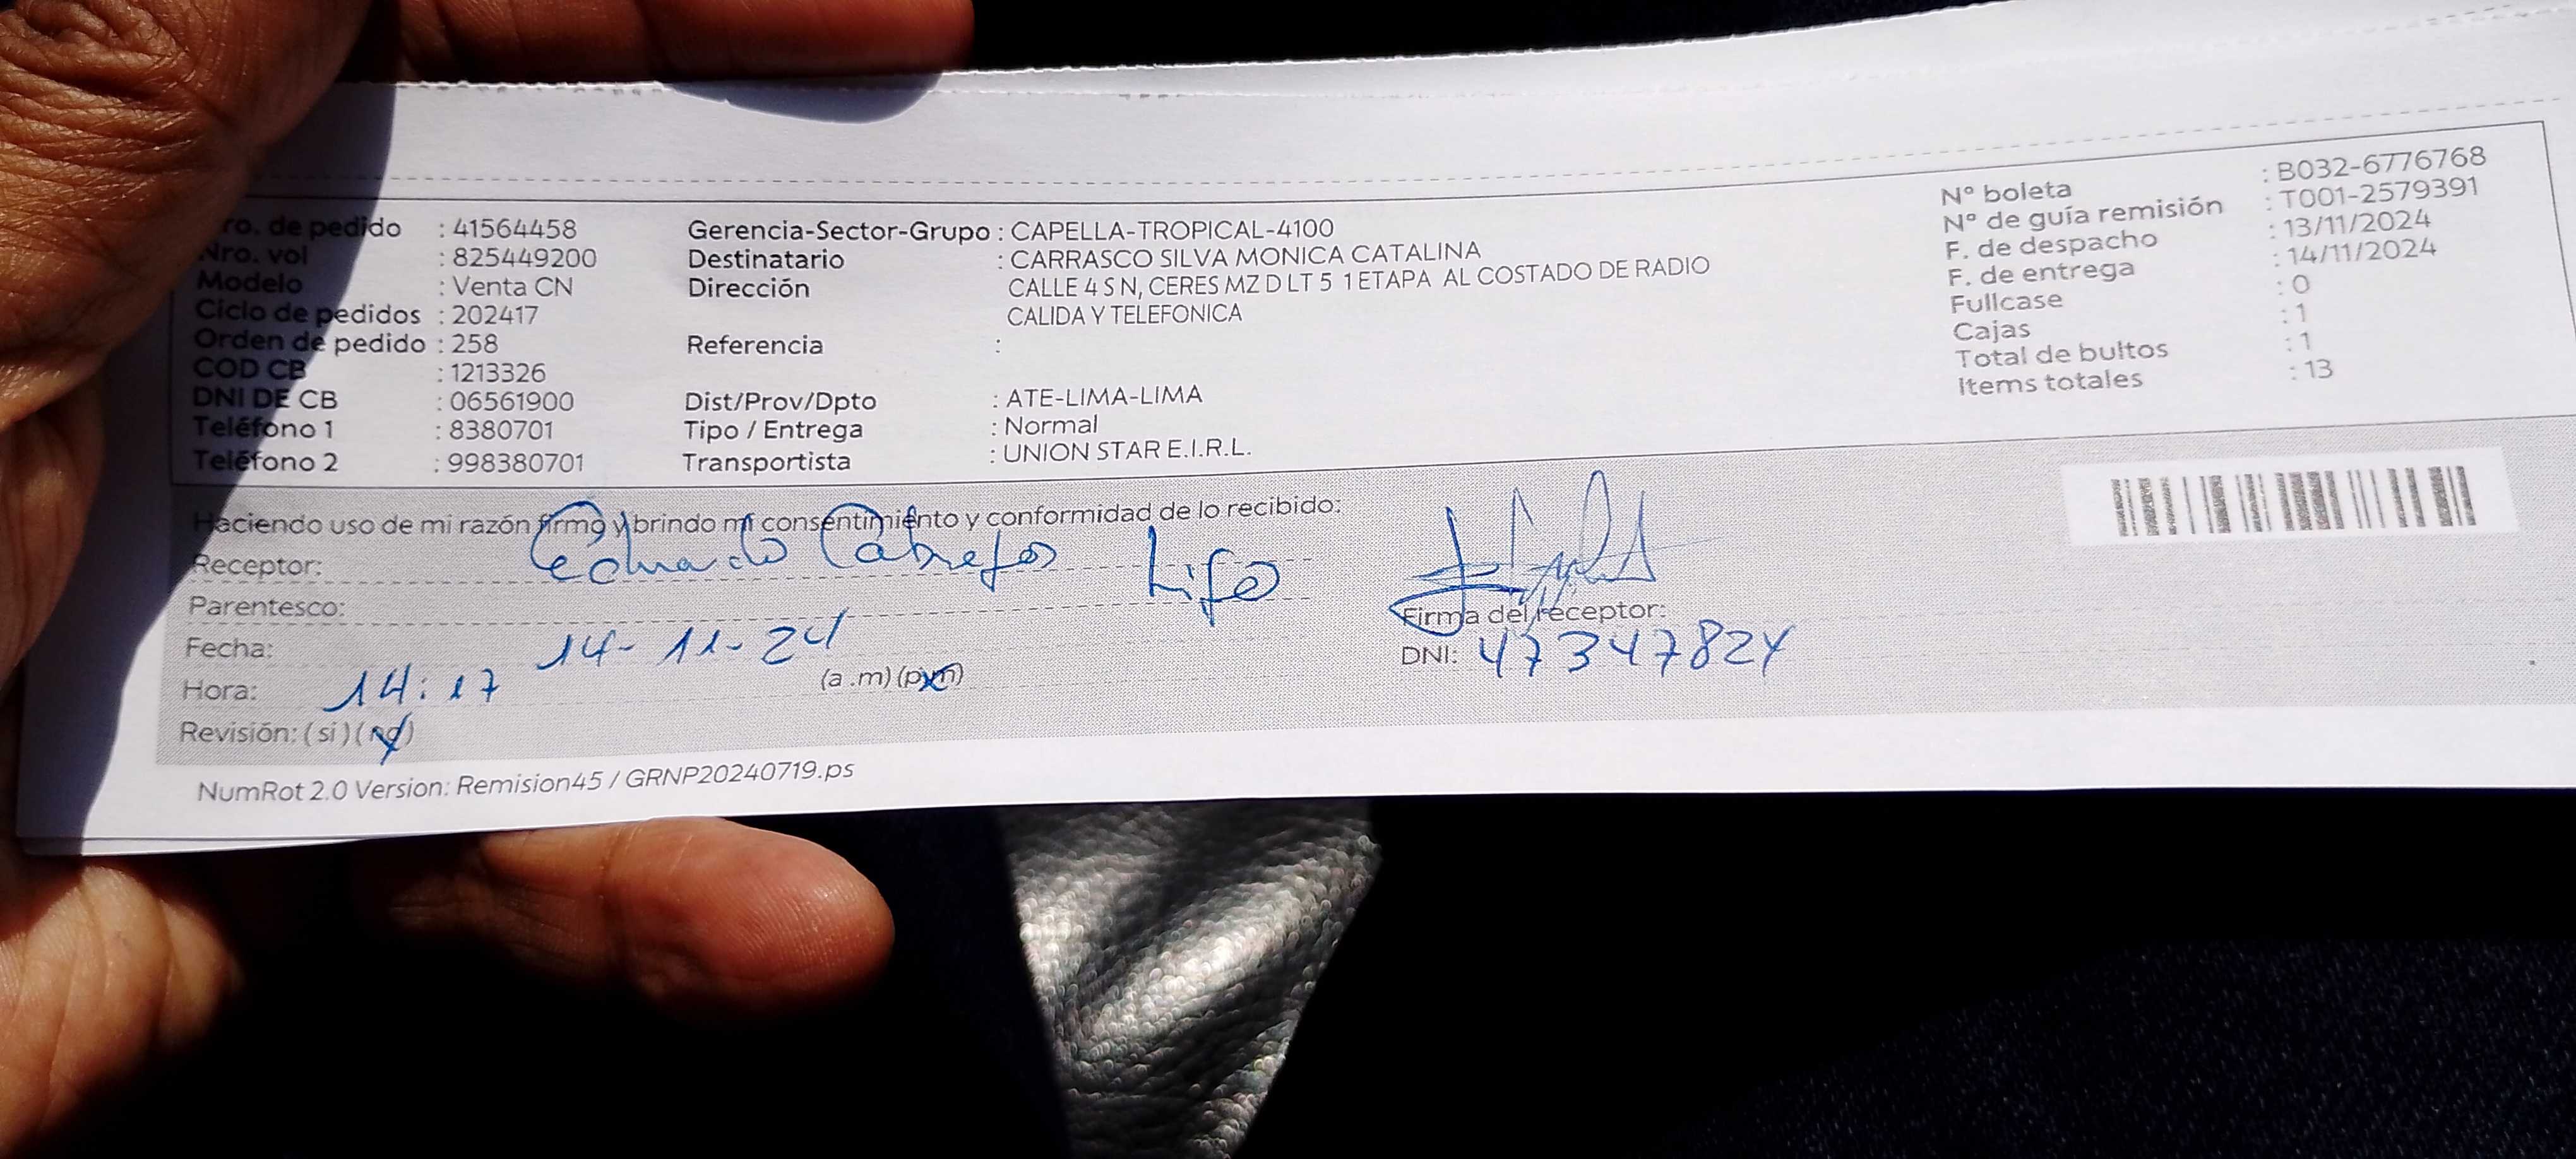 ro. de pedido : 41564458
Nro. vol : 825449200
Modelo : Venta CN
Ciclo de pedidos : 202417
Orden de pedido : 258
COD CB : 1213326
DNI DE CB : 06561900
Teléfono 1 : 8380701
Teléfono 2 : 998380701
Gerencia-Sector-Grupo : CAPELLA-TROPICAL-4100
Destinatario : CARRASCO SILVA MONICA CATALINA
Dirección CALLE 4 S N, CERES MZ D LT 5 1 ETAPA AL COSTADO DE RADIO
CALIDA Y TELEFONICA
Referencia :
Dist/Prov/Dpto : ATE-LIMA-LIMA
Tipo / Entrega : Normal
Transportista : UNION STAR E.I.R.L.
N° boleta : B032-6776768
N° de guía remisión : T001-2579391
F. de despacho : 13/11/2024
F. de entrega : 14/11/2024
Fullcase : 0
Cajas : 1
Total de bultos : 1
Items totales : 13
Haciendo uso de mi razón firmo y brindo mi consentimiento y conformidad de lo recibido:
Receptor: Eduardo Cabrejos
Parentesco:
Fecha: 14-11-24
Hora: 14:17 (a .m) (p.m)
Revisión: (si) (no)
Firma del receptor:
DNI: 47347824
NumRot 2.0 Version: Remision45 / GRNP20240719.ps